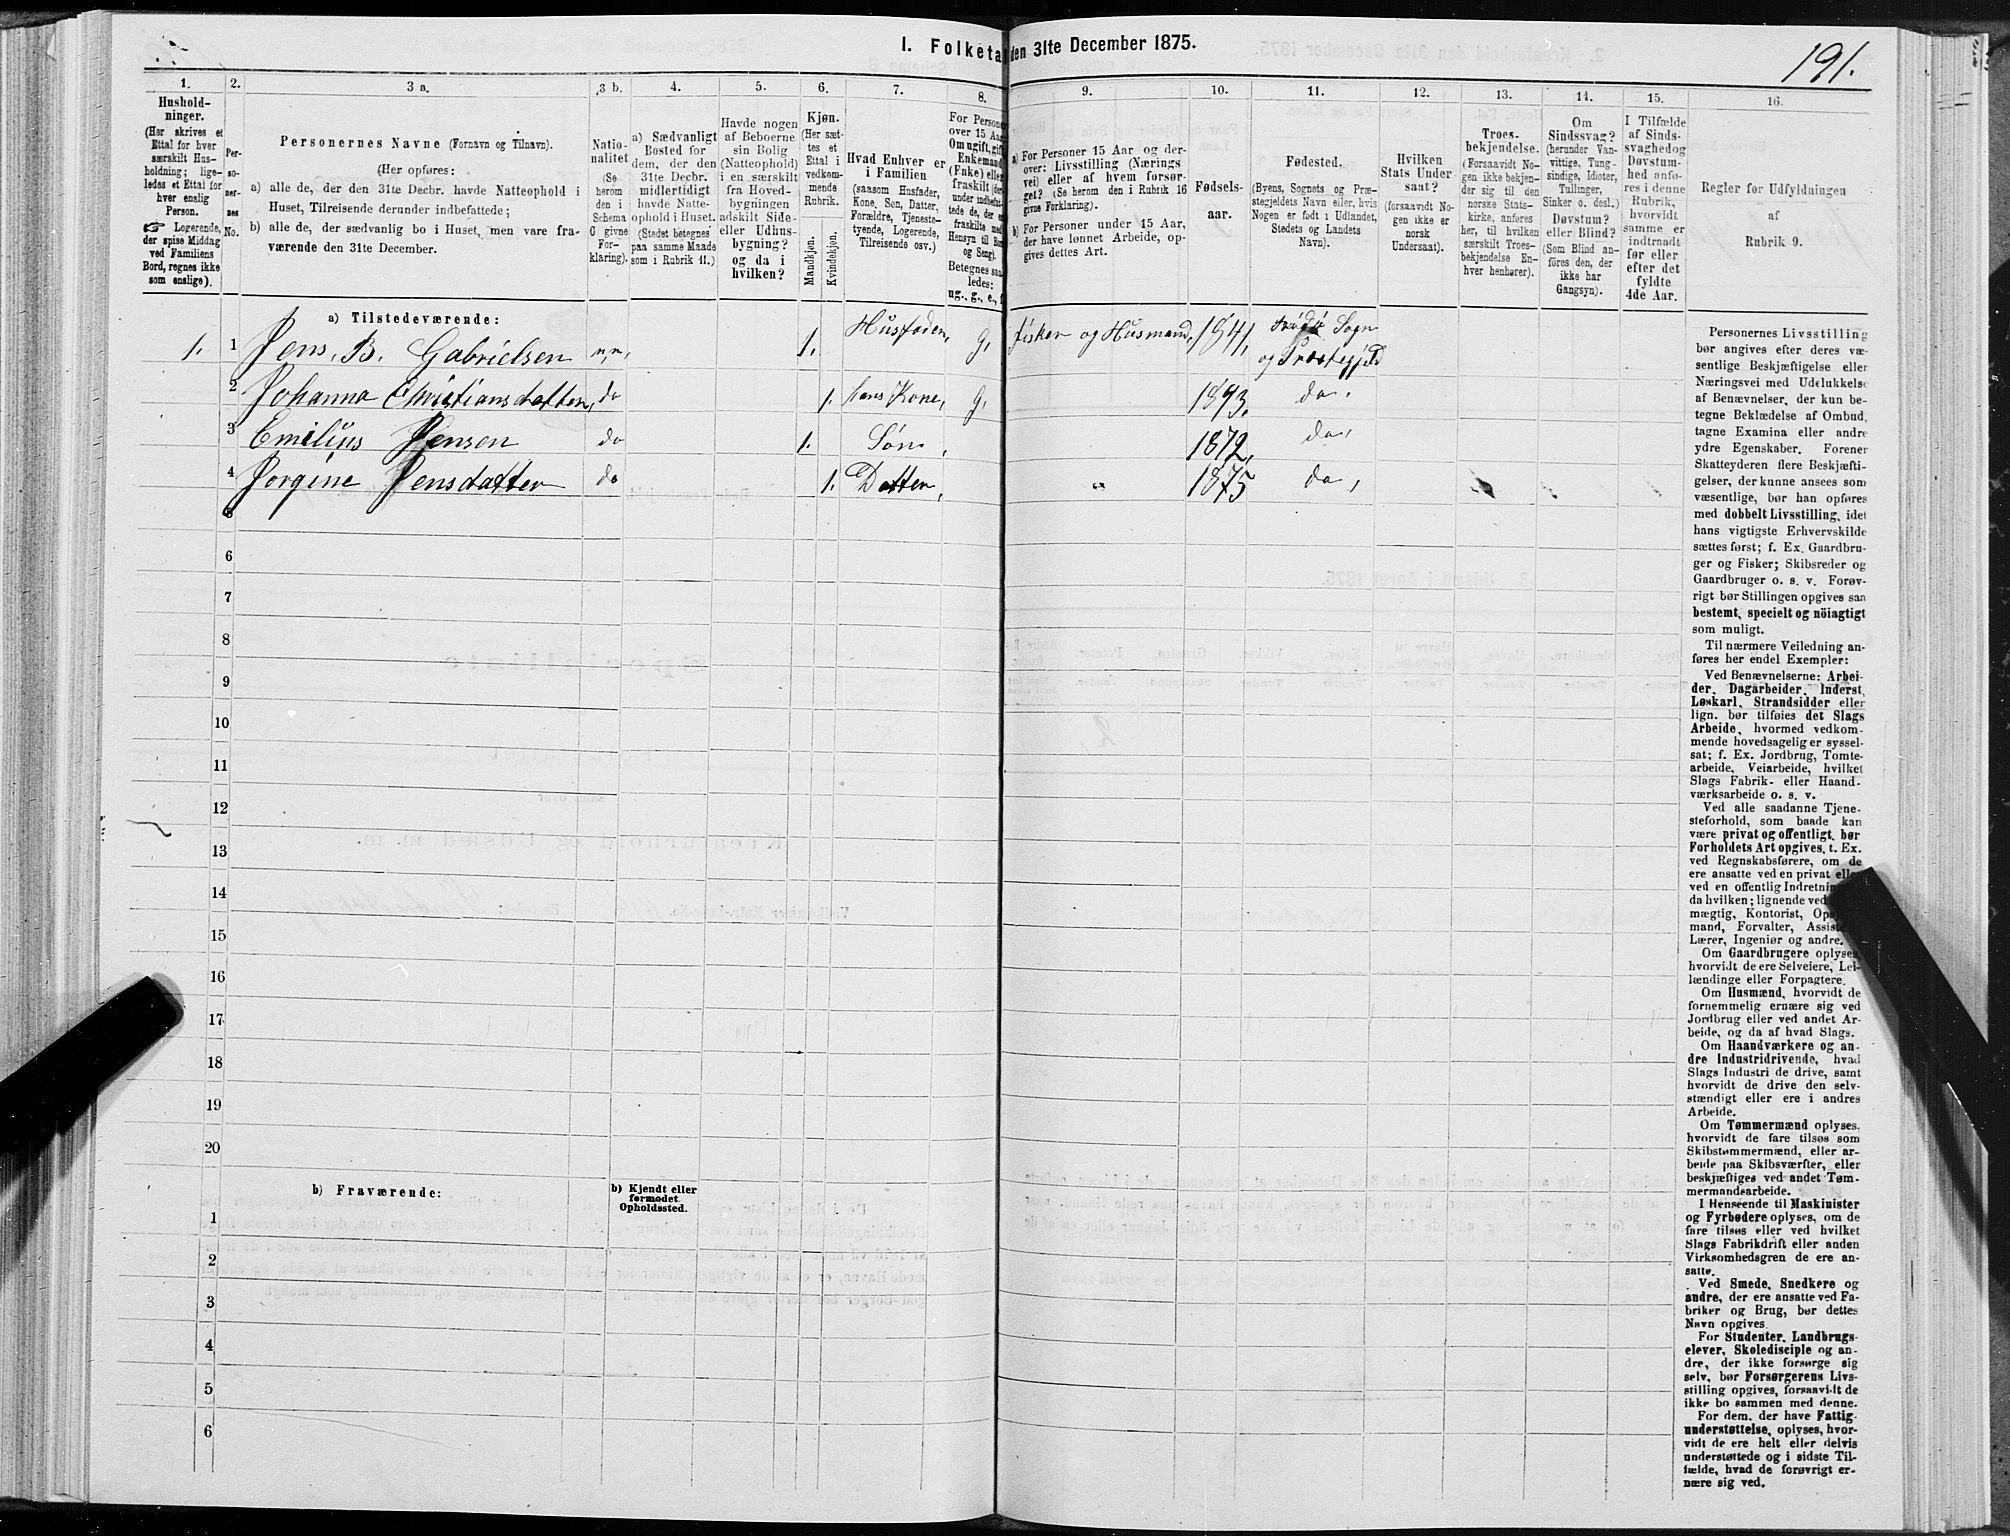 I. Folketa den 31te December 1875.
191.
1. 2. 3 a. 3 b. 4. 5. 6. 7. 8. 9. 10. 11. 12. 13. 14. 15. 16.
Hushold-
ninger.
(Her skrives et
Ettal for hver
særskilt Hus-
holdning; lige-
ledes et Ettal for
hver enslig
Person.
Logerende,
der spise Middag
ved Familiens
Bord, regnes ikke
som enslige).
Per-
so-
ner-
nes
No.
Personernes Navne (Fornavn og Tilnavn).
(Her opføres:
a) alle de, der den 31te Decbr. havde Natteophold i
Huset, Tilreisende derunder indbefattede;
b) alle de, der sædvanlig bo i Huset, men vare fra-
værende den 31te December.
Natio-
nalitet
(Se
herom
den i
Schema
C givne
For-
klaring).
a) Sædvanligt
Bosted for
dem, der den
31te Decbr.
midlertidigt
havde Natte-
ophold i Huset.
(Stedet betegnes
paa samme Maade
som i Rubrik 11.)
Havde nogen
af Beboerne
sin Bolig
(Natteophold)
i en særskilt
fra Hoved-
bygningen
adskilt Side-
eller Udhus-
bygning?
og da i
hvilken?
Kjøn.
(Her sæt-
tes et
Ettal i
vedkom-
mende
Rubrik.
Mandkjøn.
Kvindekjøn.
Hvad Enhver er
i Familien
(saasom Husfader,
Kone, Søn, Datter,
Forældre, Tjeneste-
tyende, Logerende,
Tilreisende osv.)
For Persone
over 15 Aar
Om ugift, gift
Enkemand
(Enke) eller
fraskilt (der-
under indbefat-
tede de, der er
fraskilte med
Hensyn til Bor
og Seng).
Betegnes saa
ledes:
ug., g., e., f.
a) For Personer 15 Aar og der-
over: Livsstilling (Nærings
vei) eller af hvem forsør-
get? (Se herom den i Rubrik 16
givne Forklaring).
b) For Personer under 15 Aar,
der have lønnet Arbeide, op-
gives dettes Art.
Fødsels-
aar.
Fødested.
(Byens, Sognets og Præ-
stegjeldets Navn eller, hvis
Nogen er født i Udlandet,
Stedets og Landets
Navn).
Hvilken
Stats Under
saat?
(forsaavidt No-
gen ikke er
norsk
Undersaat).
Troes-
bekjendelse.
(Forsaavidt No-
gen ikke bekjen-
der sig til den
norske Stats-
kirke, anføres
her, til hvilken
særskilt Troes-
bekjendelse En-
hver henhører).
Om
Sindssvag?
(herunder Van-
vittige, Tung-
sindige, Idioter,
Tullinger,
Sinker o. desl.)
Døvstum?
eller Blind?
(Som Blind an-
føres den, der
ikke har
Gangsyn).
I Tilfælde
af Sinds-
svaghed og
Døvstum-
hed anfø-
res i denne
Rubrik,
hvorvidt
samme er
indtraadt
før eller
efter det
fyldte
4de Aar.
Regler før Udfyldningen
af
Rubrik 9.
a) Tilstedeværende:
1. 1 Jens. B. Gabrielsen n,n, 1. Husfaden, g, fisker og Husmand, 1841, Sogn
og Præstegjeld
2 Johanna Christiansdatter, do 1. hans Kone, g, 1893. do.
3 Emilius Jensen do 1. Søn, 1872, do,
4 Jorgine Jensdatter do 1. Datter, " 1875 do,
5
6
7
8
9
10
11
12
13
14
15
16
17
18
19
20
b) Fraværende:
b) Kjendt eller
formodet
Opholdssted.
1
2
3
4
5
6
Personernes Livsstilling
bør angives efter deres væ-
sentlige Beskjæftigelse eller
Næringsvei med Udelukkelse
af Benævnelser, der kun be-
tegne Beklædelse af Ombud,
tagne Examina eller andre
ydre Egenskaber. Forener
Skatteyderen flere Beskjæfti-
gelser, der kunne ansees som
væsentlige, bør han opføres
med dobbelt Livsstilling, idet
hans vigtigste Erhvervskilde
sættes først; f. Ex. Gaardbru-
ger og Fisker; Skibsreder og
Gaardbruger o. s. v. Forøv-
rigt bør Stillingen opgives saa
bestemt, specielt og nöiagtigt
som muligt.
Til nærmere Veiledning an-
føres her endel Exempler:
Ved Benævnelserne: Arbei-
der, Dagarbeider, Inderst,
Løskarl, Strandsidder eller
lign. bør tilføies det Slags
Arbeide, hvormed vedkom-
mende hovedsagelig er syssel-
sat; f. Ex. Jordbrug, Tomte-
arbeide, Veiarbeide, hvilket
Slags Fabrik- eller Haand-
værksarbeide o. s. v.
Ved alle saadanne Tjene-
steforhold, som baade kan
være privat og offentligt, bør
Forholdets Art opgives, t. Ex.
ved Regnskabsførere, om de
ere ansatte ved en privat elle
ved en offentlig Indretnin
da hvilken; lignende ved
mægtig, Kontorist, Op
mand, Forvalter, Assis
Lærer, Ingeniør og andre.
Om Gaardbrugere oplyses,
hvorvidt de ere Selveiere, Lei-
lændinge eller Forpagtere.
Om Husmænd, hvorvidt de
fornemmelig ernære sig ved
Jordbrug eller ved andet Ar-
beide, og da af hvad Slags.
Om Haandværkere og an-
dre Industridrivende, hvad
Slags Industri de drive, samt
hvorvidt de drive den selv-
stændigt eller ere i andres
Arbeide.
Om Tømmermænd oplyses,
hvorvidt de fare tilsøs som
Skibstømmermænd, eller ar-
beide paa Skibsværfter, eller
beskjæftiges ved andet Tøm-
mermandsarbeide.
I Henseende til Maskinister
og Fyrbødere oplyses, om de
fare tilsøs eller ved hvilket
Slags Fabrikdrift eller anden
Virksomhedsgren de ere an-
satte.
Ved Smede, Snedkere og
andre, der ere ansatte ved Fa-
briker og Brug, bør dettes
Navn opgives.
For Studenter, Landbrugs-
elever, Skoledisciple og an-
dre, der ikke forsørge sig
selv, bør Forsørgerens Livs-
stilling opgives, forsaavidt de
ikke bo sammen med denne.
For dem, der have Fattig-
understøttelse, oplyses, hvor-
vidt de ere helt eller delvis
understøttede og i sidste Til-
fælde, hvad de forøvrigt er-
nære sig ved.